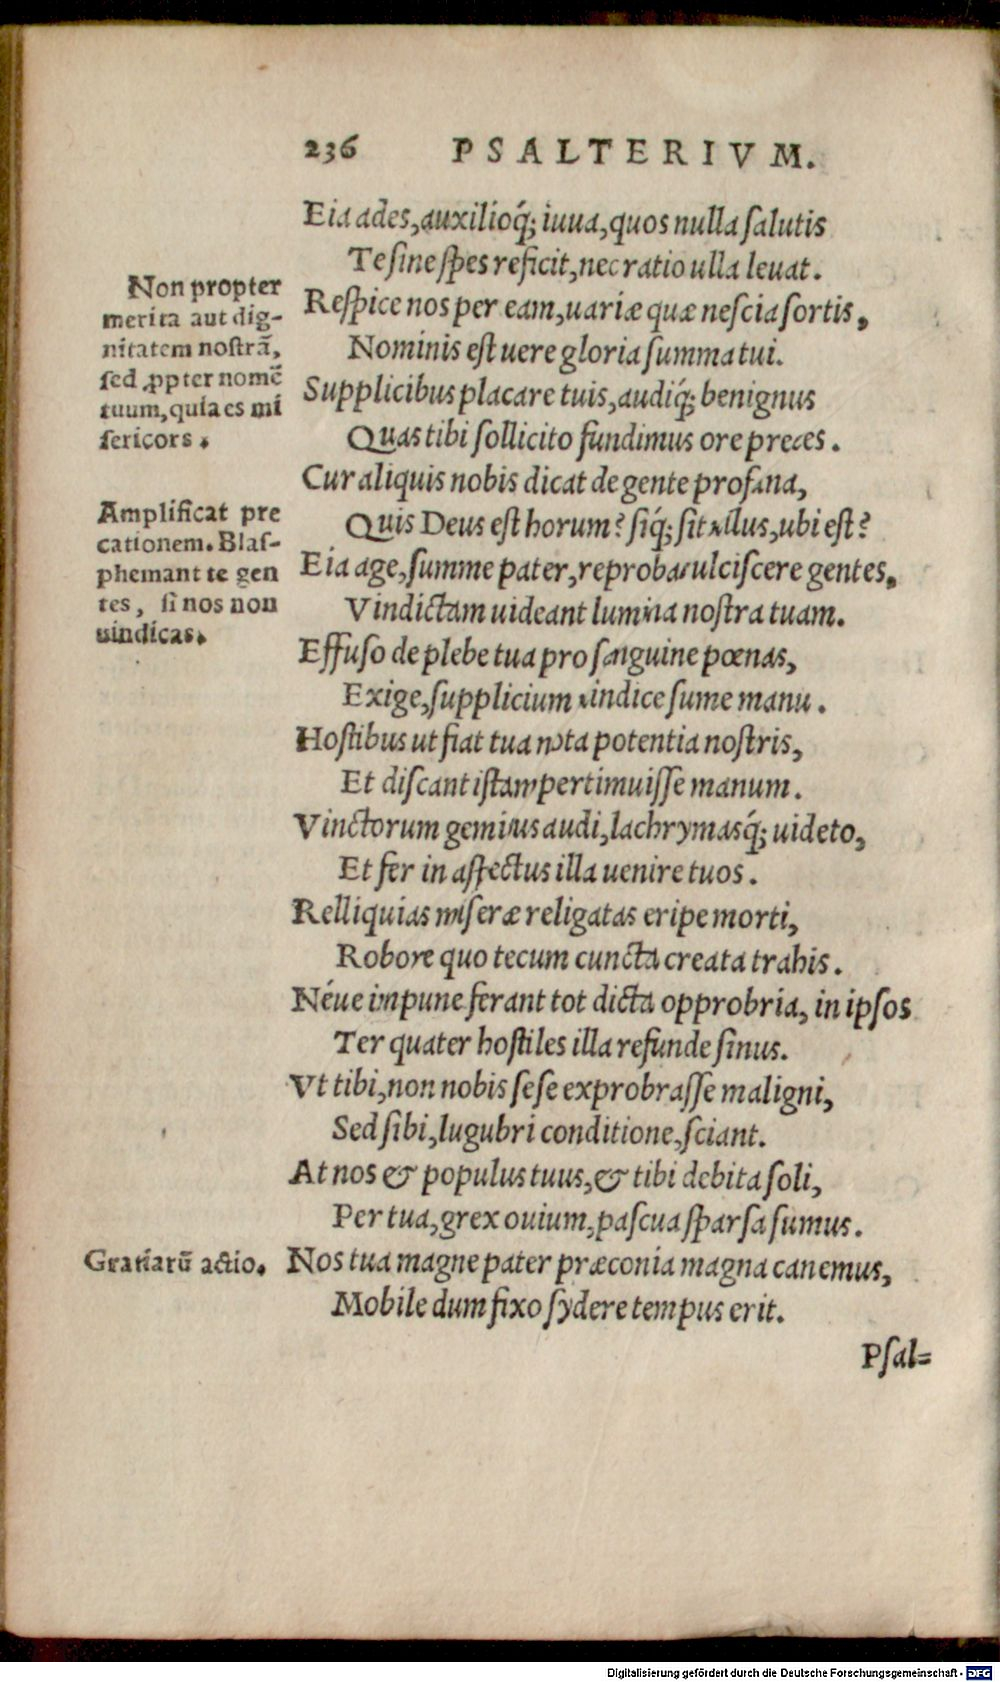 236 PSALTERIVM.
Eia ades, auxilioq́; iuua, quos nulla ſalutis
Te ſine ſpes reficit, nec ratio ulla leuat.
Reſpice nos per eam, uariæ quæ neſcia ſortis,
Nominis eſt uere gloria ſumma tui.
Supplicibus placare tuis, audiq́; benignus
Quas tibi ſollicito fundimus ore preces.
Cur aliquis nobis dicat de gente profana,
Quis Deus eſt horum? ſiq́; ſit ullus, ubi eſt?
Eia age, ſumme pater, reprobas ulciſcere gentes,
Vindictam uideant lumina noſtra tuam.
Effuſo de plebe tua pro ſanguine pœnas,
Exige, ſupplicium uindice ſume manu.
Hoſtibus ut fiat tua nota potentia noſtris,
Et diſcant iſtam pertimuiſſe manum.
Vinctorum gemitus audi, lachrymasq́; uideto,
Et fer in aſpectus illa uenire tuos.
Relliquias miſeræ religatas eripe morti,
Robore quo tecum cuncta creata trahis.
Néue impune ferant tot dicta opprobria, in ipſos
Ter quater hoſtiles illa refunde ſinus.
Vt tibi, non nobis ſeſe exprobraſſe maligni,
Sed ſibi, lugubri conditione, ſciant.
At nos & populus tuus, & tibi debita ſoli,
Per tua, grex ouium, paſcua ſparſa ſumus.
Nos tua magne pater præconia magna canemus,
Mobile dum fixo ſydere tempus erit.
Pſal=
Non propter
merita aut dig-
nitatem noſtrā,
ſed ꝓpter nomē
tuum, quia es mi
ſericors.
Amplificat pre
cationem. Blaſ-
phemant te gen
tes, ſi nos non
uindicas.
Gratiarū actio.
Digitalisierung gefördert durch die Deutsche Forschungsgemeinschaft - DFG